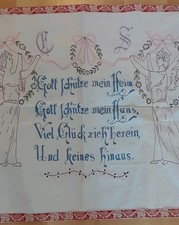 C S
Gott schütze mein Heim
Gott schütze mein Haus,
Viel Glück zieh herein,
Und keines hinaus.